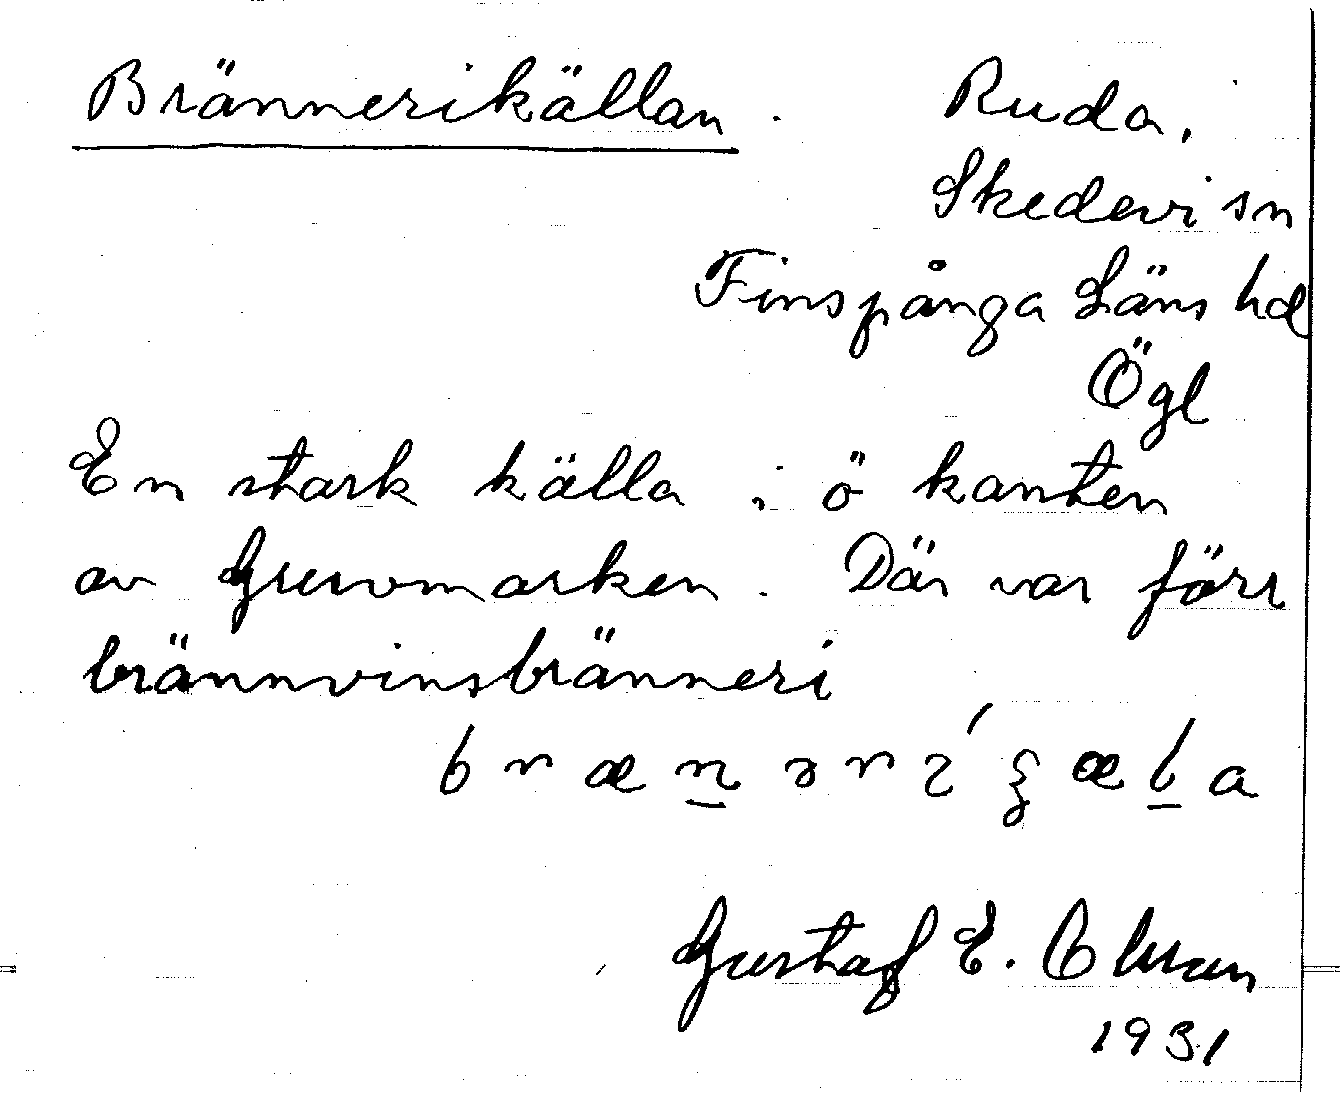 Brännerikällan. Ruda,
Skedevi sn
Finspånga Läns hd
Ögl
En stark källa i ö kanten
av Gruvmarken. Där var förr
brännvinsbränneri
Gustaf E. Olsson
1931